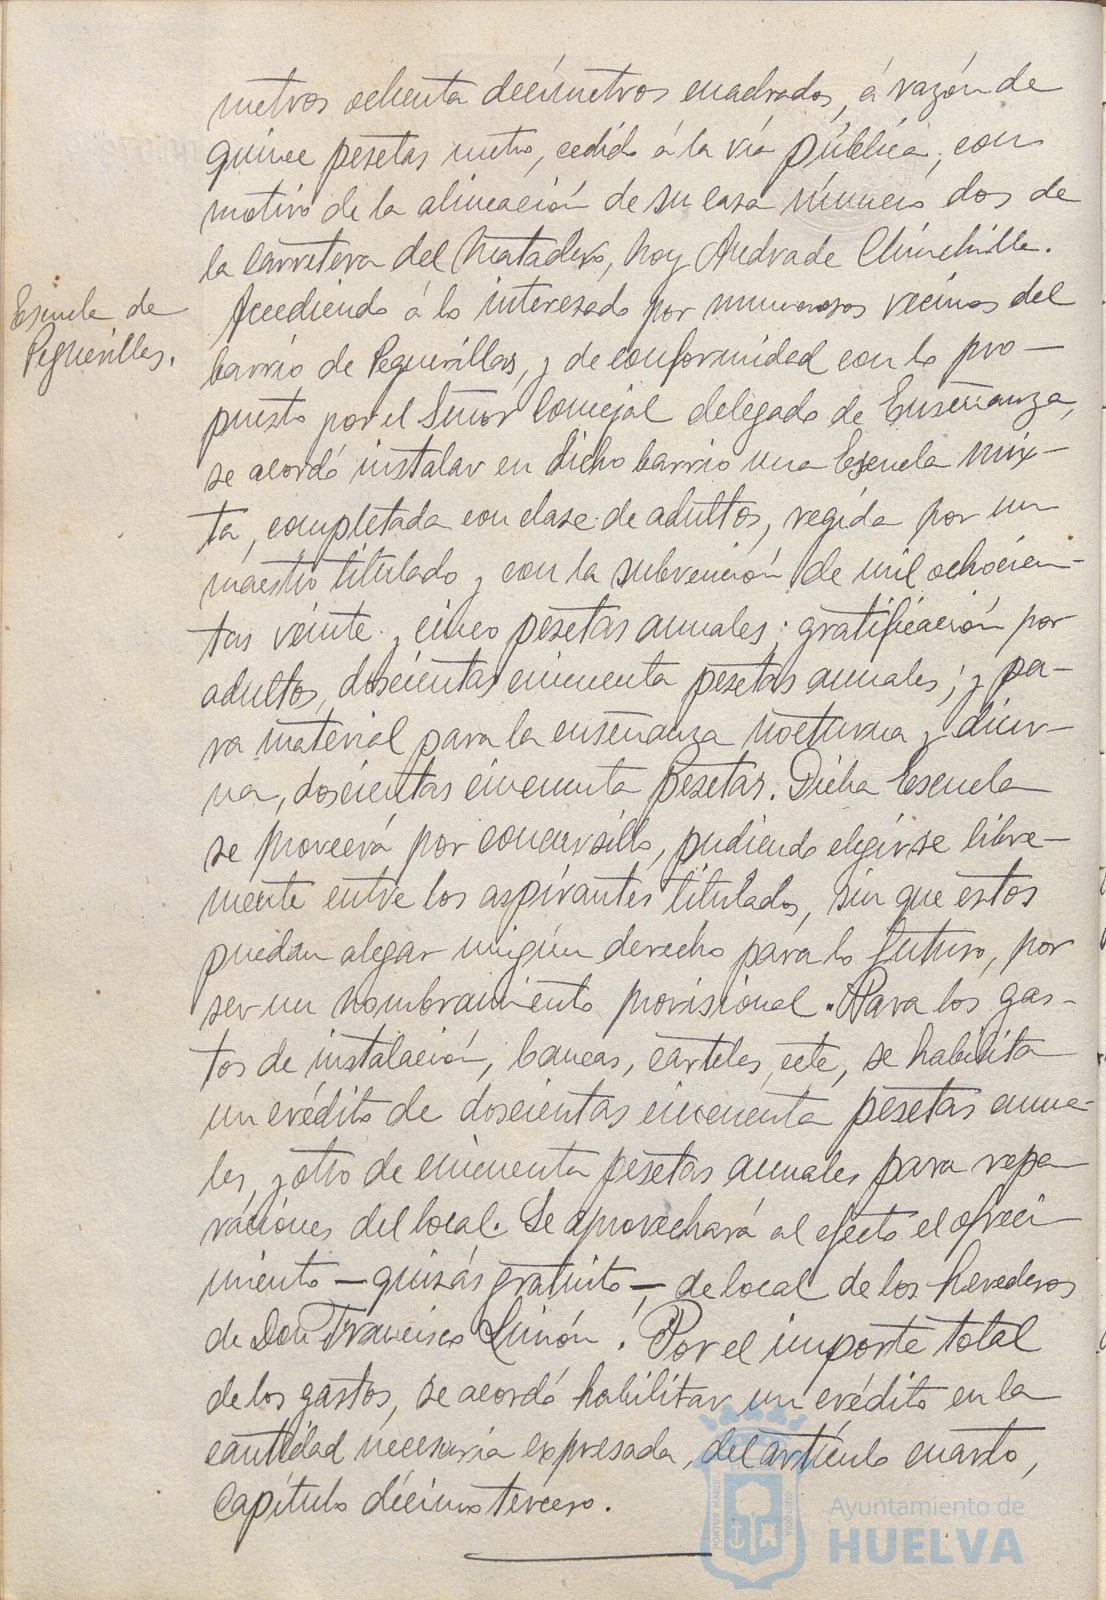 metros ochenta decímetros cuadrados, á razón de
quince pesetas metro, cedido á la vía pública, con
motivo de la alineación de su casa número dos de
la carretera del Matadero, hoy Andrade Chinchilla.
Escuela de
Peguerillas.
Accediendo á lo interesado por numerosos vecinos del
barrio de Peguerillas, y de conformidad con lo pro-
puesto por el Señor Concejal delegado de Enseñanza,
se acordó instalar en dicho barrio una Escuela mix-
ta, completada con clase de adultos, regida por un
maestro titulado y con la subvención de mil ochocien-
tas veinte y cinco pesetas anuales; gratificación por
adultos, doscientas cincuenta pesetas anuales; y pa-
ra material para la enseñanza nocturna y diur-
na, doscientas cincuenta pesetas. Dicha Escuela
se proveerá por concursillo, pudiendo elegirse libre-
mente entre los aspirantes titulados, sin que estos
puedan alegar ningún derecho para lo futuro, por
ser un nombramiento provisional. Para los gas-
tos de instalación, bancas, carteles, ectc, se habilita
un crédito de doscientas cincuenta pesetas anua-
les, y otro de cincuenta pesetas anuales para repa-
raciones del local. Se aprovechará al efecto el ofreci
miento - quizás gratuito - de local de los herederos
de Don Francisco Limón. Por el importe total
de los gastos, se acordó habilitar un crédito en la
cantidad necesaria expresada, del artículo cuarto,
Capítulo décimo tercero.
Ayuntamiento de
HUELVA